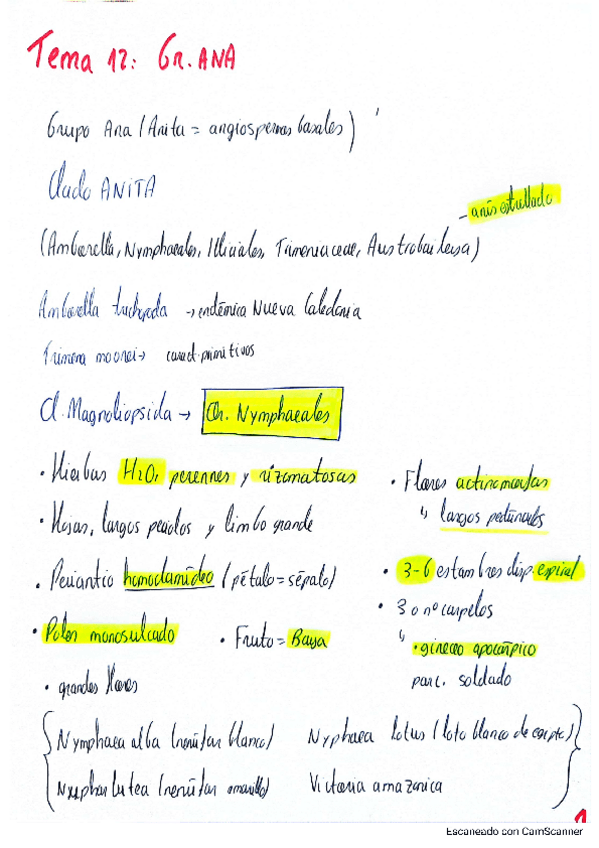 Tema 12: Gr. ANA
Grupo Ana (Anita = angiospermas basales)
Clado ANITA
- anís estrellado
(Amborella, Nymphaeales, Illiciales, Trimeniaceae, Austrobaileya)
Amborella → endémica Nueva Caledonia
Trimenia moorei → caract. primitivos
Cl. Magnoliopsida → Or. Nymphaeales
• Hierbas H2O, perennes y rizomatosas
• Hojas, largos peciolos y limbo grande
• Periantio homoclamídeo (pétalo = sépalo)
• Polen monosulcado
• Fruto = Baya
• grandes flores
• Flores actinomorfas
↳ largos pedúnculos
• 3-6 estambres disp. espiral
• 3 o nº carpelos
↳ • gineceo apocárpico
parc. soldado
Nymphaea alba (nenúfar blanco)
Nyphaea lotus (loto blanco de egipto)
Nuphar lutea (nenúfar amarillo)
Victoria amazonica
1
Escaneado con CamScanner